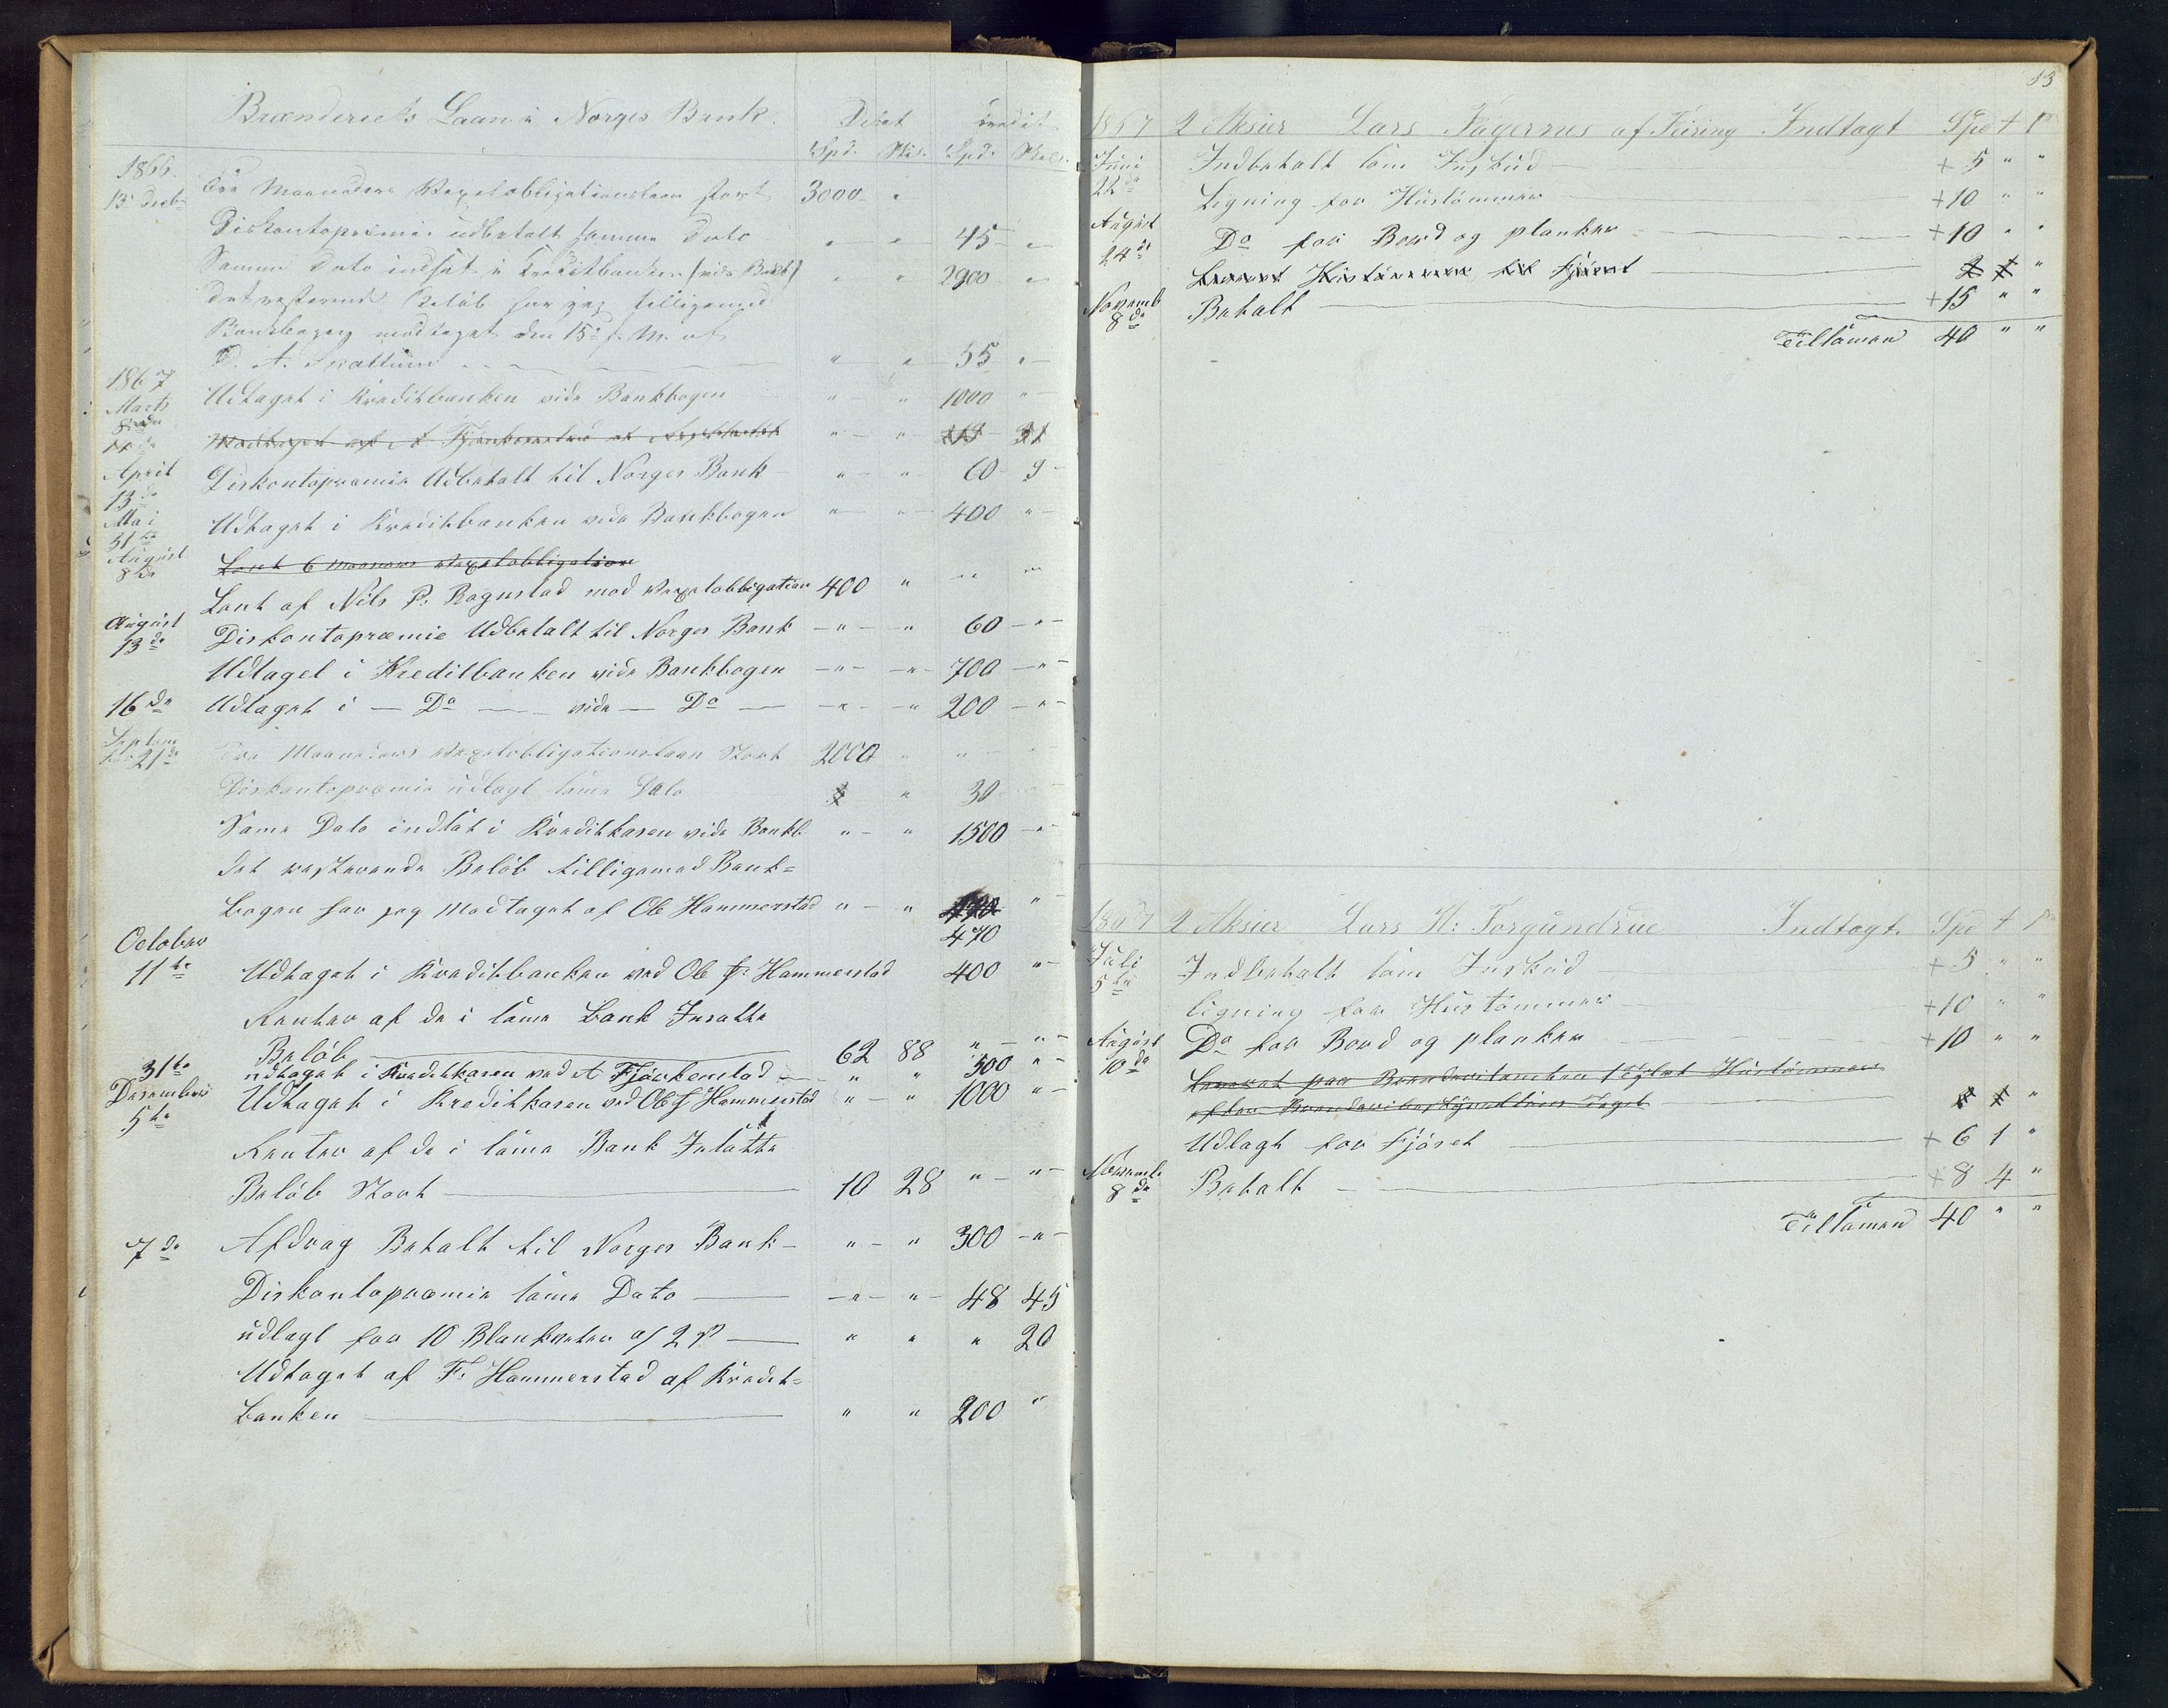 Brænderiets Laan i Norges Bank. Debet Credit
Spd. Skl. Spd. Skl.
1866.
13 Decb. Tre Maaneders Vexelobligationslaan stort 3000 "
Diskontopræmie udbetalt samme Dato " " 45 "
Samme Dato indsat i Kreditbanken (vide Bankb) " " 2900 "
det resterende Beløb har jeg tilligemed
Bankbogen modtaget den 15de s. M. af
A. " " 55 "
1867
Marts Udtaget i Kreditbanken vide Bankbogen " " 1000 "
Modtaget af A. " " 31
April
13de Diskontopræmie Udbetalt til Norges Bank " " 60 9
Mai
31te Udtaget i Kreditbanken vide Bankbogen " " 400 "
August
8de Lånt 6 Maaneders Vexelobligation
Lånt af Nils P. Ragnstad mod Vexelobligation 400 " " "
August
13de Diskontopræmie Udbetalt til Norges Bank " " 60 "
Udtaget i Kreditbanken vide Bankbogen " " 700 "
16de Udtaget i Do vide Do " " 200 "
Septem
ber 21de Tre Maaneders Vexelobligationslaan Stort 2000 " " "
Diskontopræmie udlagt same Dato " 30
Same Dato indsat i Kreditkasen vide Bankb. " " 1500 "
det resterende Beløb tilligemed Bank=
bogen har jeg Modtaget af Ole Hammerstad " " "
470
October
11te Udtaget i Kreditbanken ved Ole F: Hammerstad 400 "
Renter af de i same Bank Insatte
Beløb 62 88 " "
31te udtaget i Kreditkasen ved A Fjørkenstad " " 500 "
Desember
5te Udtaget i Kreditkasen ved Ole F Hammerstad " " 1000 "
Renter af de i same Bank Insatte
Beløb Stort 10 28 " "
7de Afdrag Betalt til Norges Bank " " 300 "
Diskontopræmie same Dato " " 48 45
udlagt for 10 Blanketer af 2 s " " " 20
Udtaget af F. Hammerstad af Kredit=
banken " " 200 "
13
1867 2 Aksier Lars Fagernes af Feiring Indtagt Spd
Juni
22de Indbetalt som Inskud + 5 " "
Ligning for Hustømmer + 10 " "
August
14de Do for Bord og planker + 10 " "
Leveret Hustømmer til Fjøset 2 1 "
Novemb
8de Betalt + 15 " "
Tilsamen 40 " "
1867 2 Aksier Lars H: Torgundrue Indtagt. Spd
Juli
5te Indbetalt som Inskud + 5 " "
ligning for Hustømmer + 10 " "
August
10de Do for Bord og planker + 10 " "
Leveret paa Brænderitomten 1 Tylvt Hustømmer
efter Brænderibestyrelsens Taget "
Udlagt for Fjøset + 6 1 "
Novemb.
8de Betalt + 8 4 "
Tilsamen 40 " "